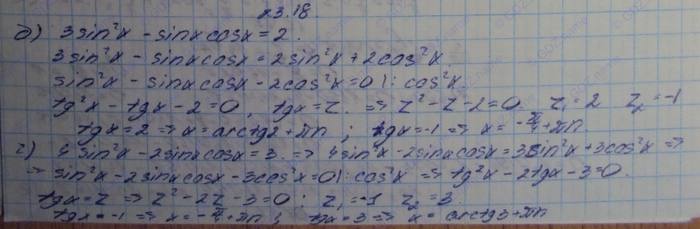 №3.18.
д) 3sin²x - sinx cosx = 2.
3sin²x - sinx cosx = 2sin²x + 2cos²x
sin²x - sinx cosx - 2cos²x = 0 |: cos²x
tg²x - tgx - 2 = 0, tgx = z. ⇒ z² - z - 2 = 0. z₁ = 2 z₂ = -1
tgx = 2 ⇒ x = arctg2 + πn ; tgx = -1 ⇒ x = -π/4 + πn.
г) 4sin²x - 2sinx cosx = 3. ⇒ 4sin²x - 2sinx cosx = 3sin²x + 3cos²x ⇒
⇒ sin²x - 2sinx cosx - 3cos²x = 0 |: cos²x ⇒ tg²x - 2tgx - 3 = 0.
tgx = z ⇒ z² - 2z - 3 = 0 ; z₁ = -1 z₂ = 3
tgx = -1 ⇒ x = -π/4 + πn ; tgx = 3 ⇒ x = arctg3 + πn